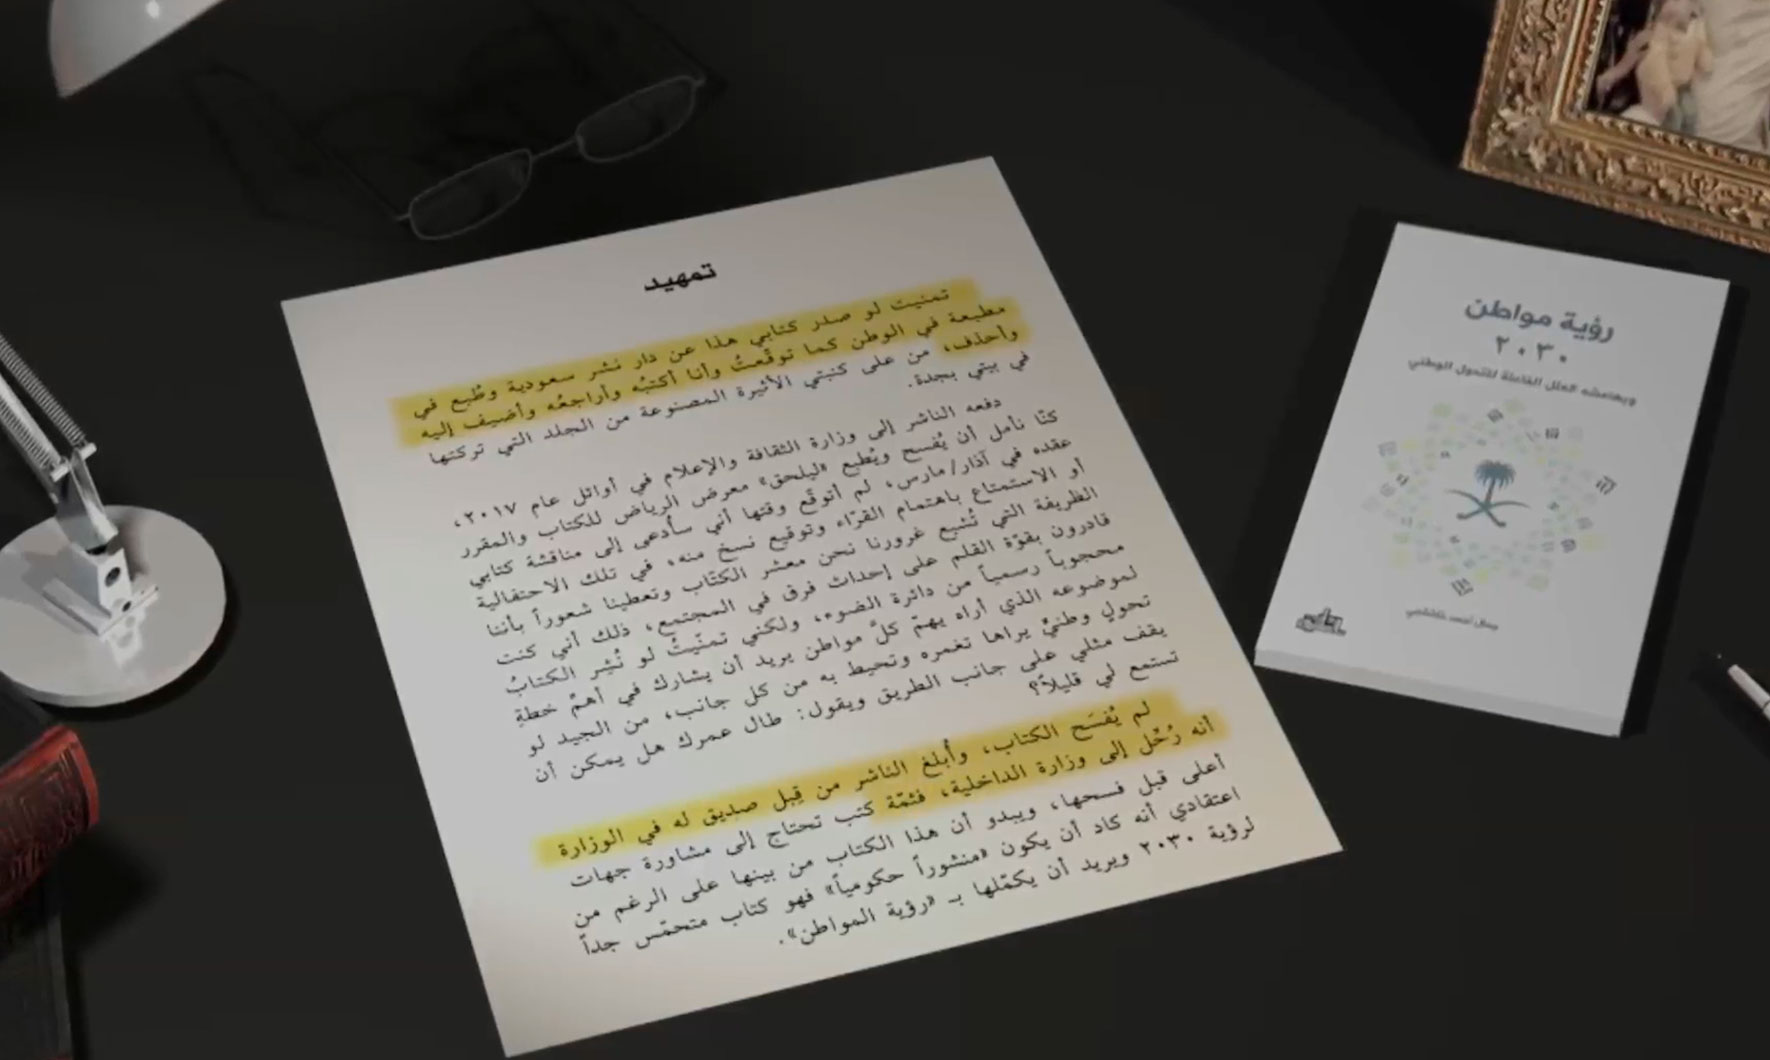 تمهيد
تمنيت لو صدر كتابي هذا عن دار نشر سعودية وطُبع في
مطبعة في الوطن كما توقّعتُ وأنا أكتبُه وأراجعُه وأضيف إليه
وأحذف، من على كنبتي الأثيرة المصنوعة من الجلد التي تركتها
في بيتي بجدة.
دفعه الناشر إلى وزارة الثقافة والإعلام في أوائل عام ٢٠١٧،
كنّا نأمل أن يُفسح ويُطبع «ليلحق» معرض الرياض للكتاب والمقرر
عقده في آذار/مارس، لم أتوقّع وقتها أني سأُدعى إلى مناقشة كتابي
أو الاستمتاع باهتمام القرّاء وتوقيع نسخ منه، في تلك الاحتفالية
الظريفة التي تُشبع غرورنا نحن معشر الكتّاب وتعطينا شعوراً بأننا
قادرون بقوّة القلم على إحداث فرق في المجتمع، ذلك أني كنت
محجوباً رسمياً من دائرة الضوء، ولكني تمنّيتُ لو نُشِر الكتابُ
لموضوعه الذي أراه يهمّ كلَّ مواطن يريد أن يشارك في أهمِّ خطةِ
تحولٍ وطنيٍّ يراها تغمره وتحيط به من كل جانب، من الجيد لو
يقف مثلي على جانب الطريق ويقول: طال عمرك هل يمكن أن
تستمع لي قليلاً؟
لم يُفسَح الكتاب، وأُبلغ الناشر من قِبل صديق له في الوزارة
أنه رُحّل إلى وزارة الداخلية، فثمّة كتب تحتاج إلى مشاورة جهات
أعلى قبل فسحها، ويبدو أن هذا الكتاب من بينها على الرغم من
اعتقادي أنه كاد أن يكون «منشوراً حكومياً» فهو كتاب متحمّس جداً
لرؤية ٢٠٣٠ ويريد أن يكمّلها بـ «رؤية المواطن».
رؤية مواطن
٢٠٣٠
وبهامشه العلل القاتلة للتحول الوطني
جمال أحمد خاشقجي